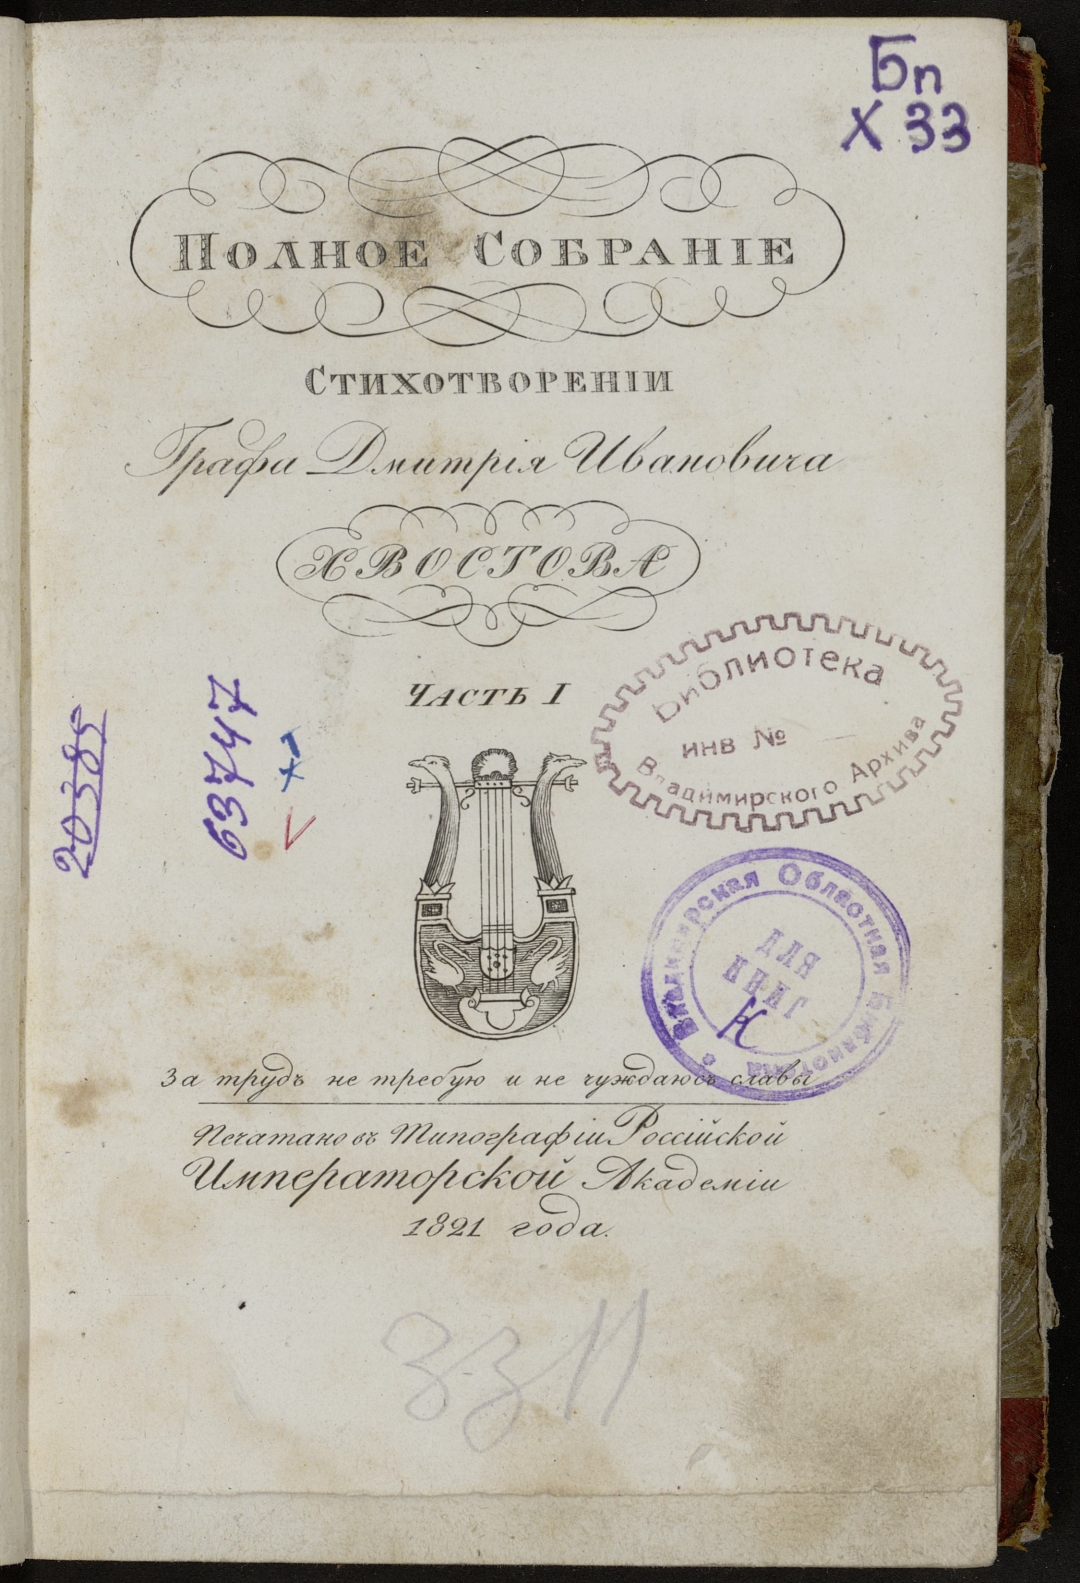 Бп
Х 33
Полное Собраніе
Стихотвореніи
Графа Дмитрія Ивановича
Хвостова
Часть I
Библиотека
инв №
Владимирского Архива
20385
63747
Владимирская Областная Библиотека
для
К
За трудъ не требую и не чуждаюсь славы
Печатано въ Типографіи Россійской
Императорской Академіи
1821 года.